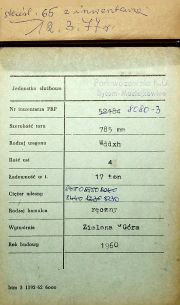 skreśl. 65 z inwentarza
12.3.77r
Jednostka służbowa
Nr inwentarza PKP 52484 8080-3
Szerokość toru 785 mm
Rodzaj wagonu Wddxh
Ilość osi 4
Ładowność w t. 17 ton
Ciężar własny
Rodzaj hamulca ręczny
Wytwórnia Zielona Góra
Rok budowy 1960